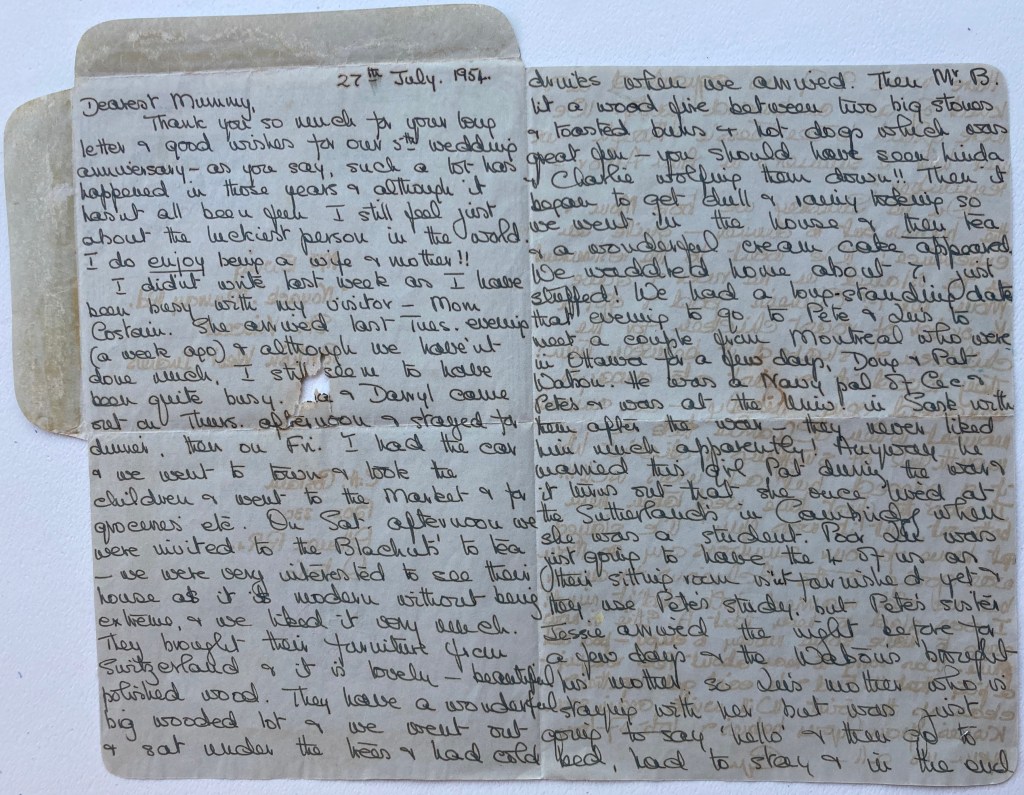 27th July. 1954.
Dearest Mummy,
Thank you so much for your long
letter & good wishes for our 5th wedding
anniversary – as you say, such a lot has
happened in those years & although it
hasn't all been fun I still feel just
about the luckiest person in the world.
I do enjoy being a wife & mother!!
I didn't write last week as I have
been busy with my visitor – Mom
Costain. She arrived last Tues. evening
(a week ago) & although we have'nt
done much, I still seem to have
been quite busy. & Darryl came
out on Thurs. afternoon & stayed for
dinner, then on Fri. I had the car
& we went to town & took the
children & went to the Market & for
groceries etc. On Sat. afternoon we
were invited to the Blachuts' to tea
– we were very interested to see their
house as it is modern without being
extreme, & we liked it very much.
They brought their furniture from
Switzerland & it is lovely – beautiful
polished wood. They have a wonderful
big wooded lot & we went out
& sat under the trees & had cold
drinks when we arrived. Then Mr. B.
lit a wood fire between two big stones
& toasted buns & hot dogs which was
great fun – you should have seen Linda
& Charlie wolfing them down!! Then it
began to get dull & rainy looking so
we went in the house & then tea
& a wonderful cream cake appeared.
We waddled home about 7, just
stuffed! We had a long-standing date
that evening to go to Pete & Lu's to
meet a couple from Montreal who were
in Ottawa for a few days, Doug & Pat
Watson. He was a Navy pal of Cec &
Pete's & was at the Univ. in Sask with
them after the war – they never liked
him much apparently! Anyway he
married this girl Pat during the war &
it turns out that she once lived at
the Sutherlands in Cambridge when
she was a student. Poor Lu was
just going to have the 4 of us as
their sitting room isn't furnished yet &
they use Pete's study, but Pete's sister
Jessie arrived the night before for
a few days & the Watsons brought
his mother so Lu's mother who is
staying with her but was just
going to say 'hello' & then go to
bed, had to stay & in the end